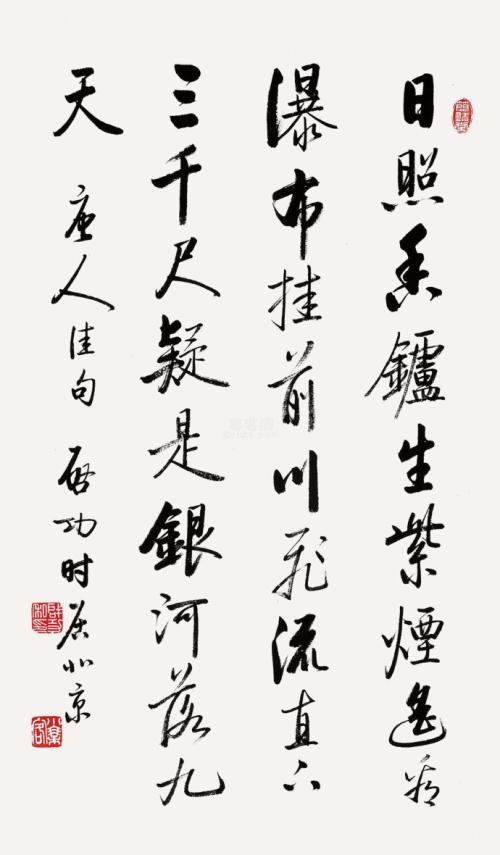 日照香鑪生紫煙遙看
瀑布挂前川飛流直下
三千尺疑是銀河落九
天 唐人佳句 啟功时居北京